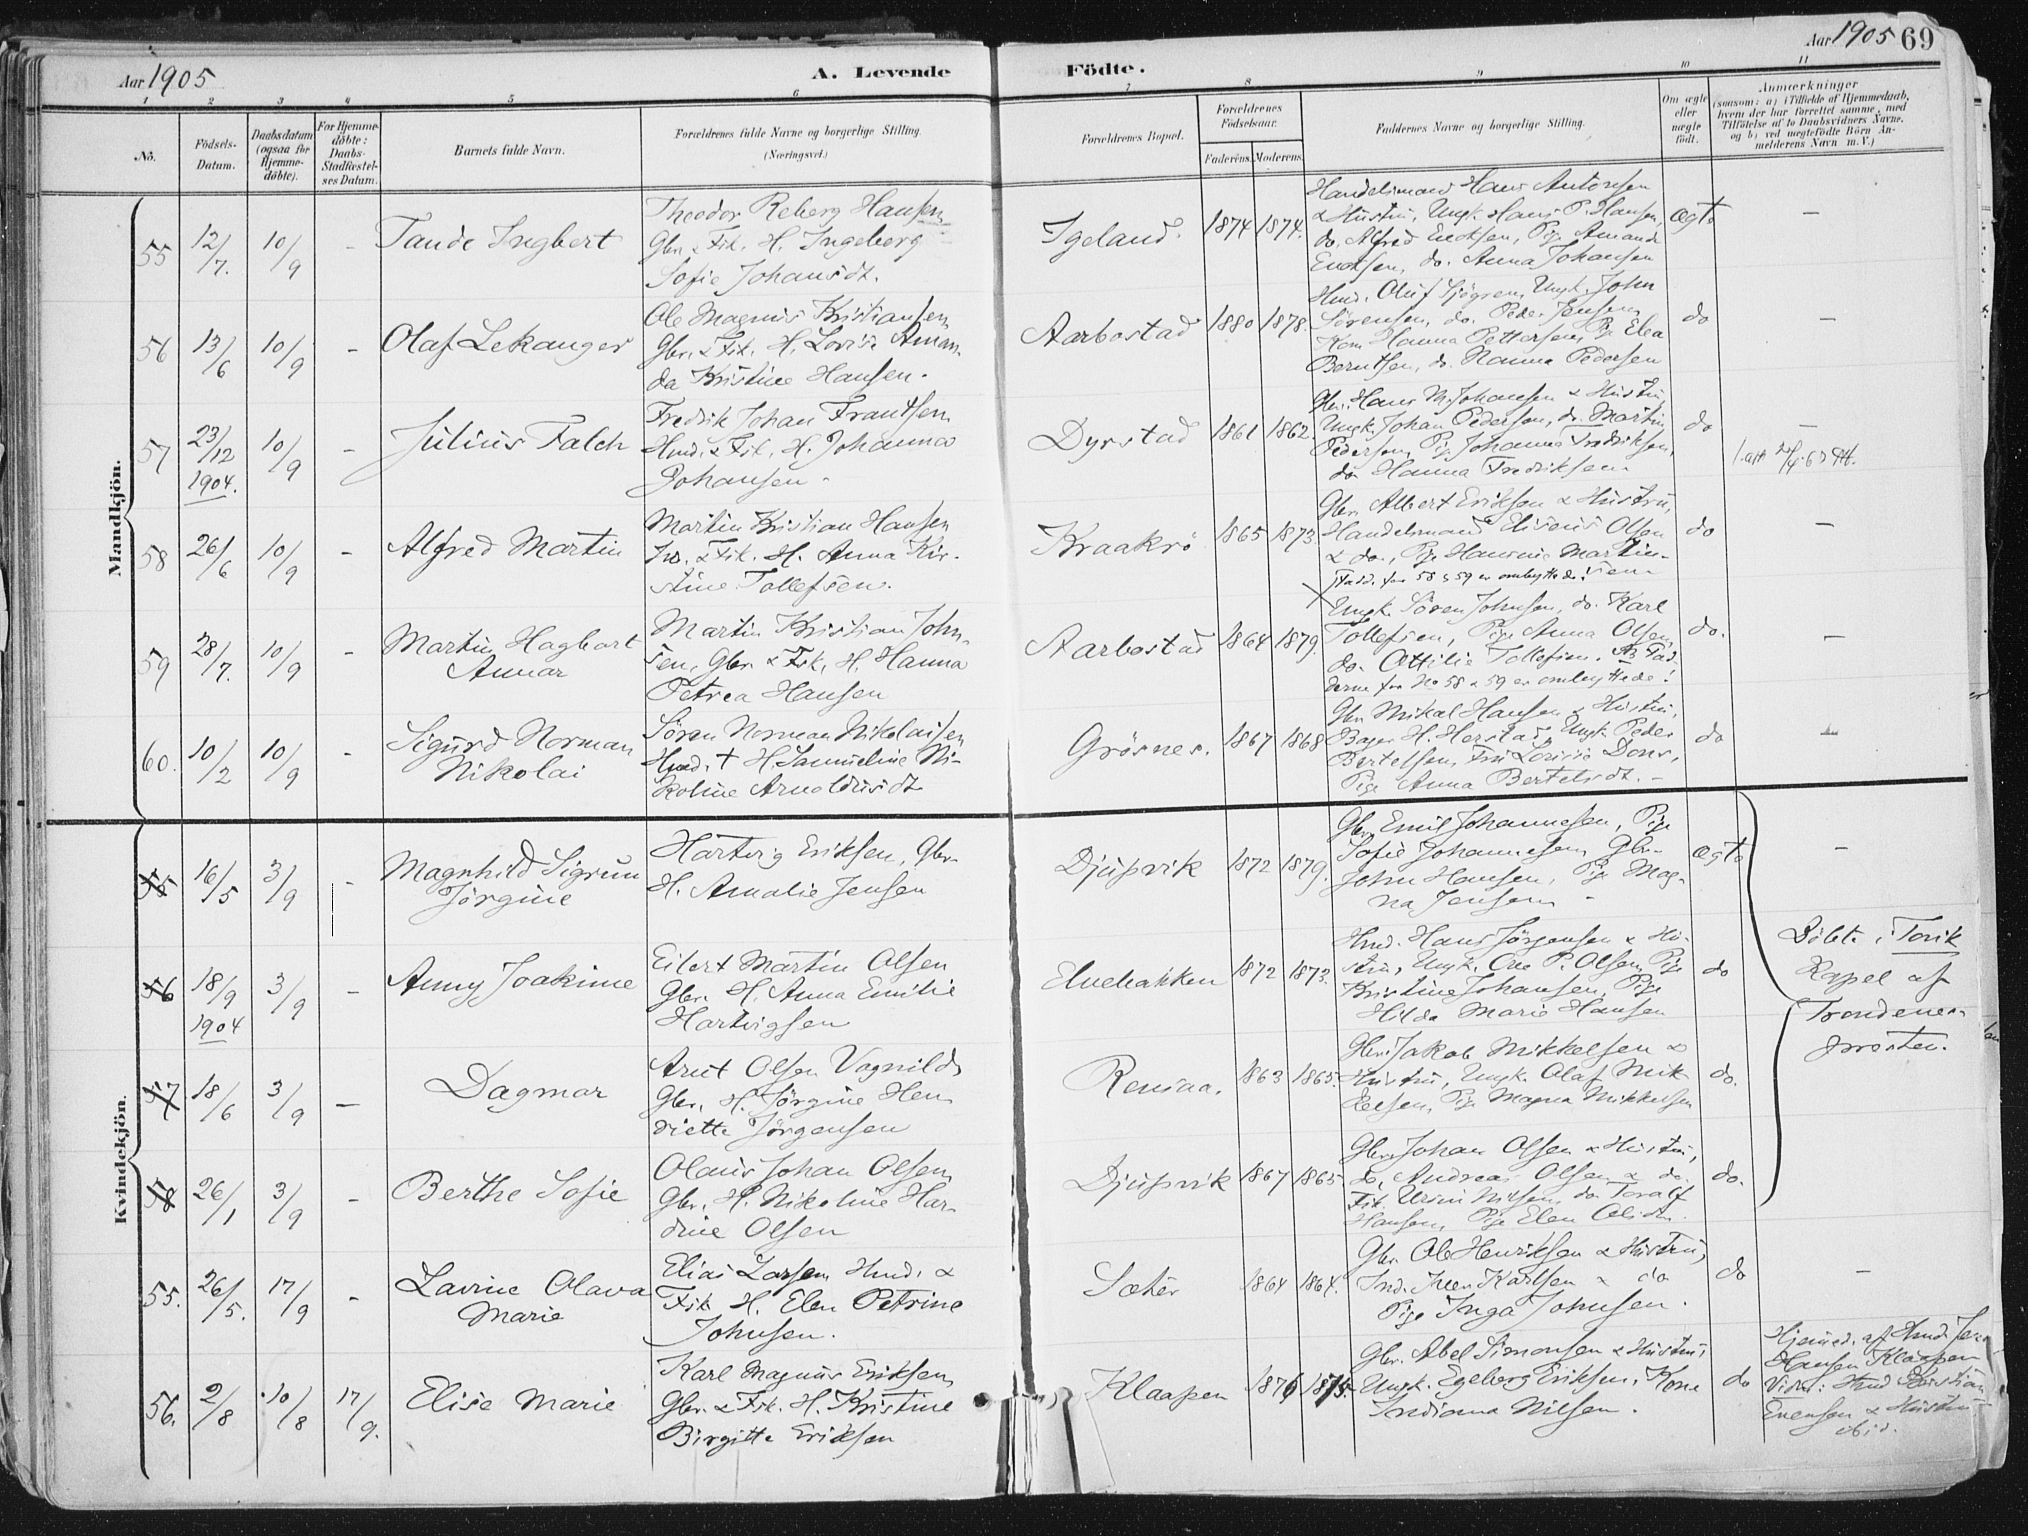 Aar 1905
A. Levende
Födte.
Aar 1905 69
1 2 3 4 5 6 7 8 9 10 11
No.
Födsels-
Datum.
Daabsdatum
(ogsaa for
Hjemme-
döbte).
For Hjemme-
döbte:
Daabs-
Stadfæstel-
ses Datum.
Barnets fulde Navn.
Forældrenes fulde Navne og borgerlige Stilling.
(Næringsvei.)
Forældrenes Bopæl.
Forældrenes
Födselsaar.
Faderens. Moderens.
Faddernes Navne og borgerlige Stilling.
Om ægte
eller
uægte
födt.
Anmærkninger
(saasom: a) i Tilfælde af Hjemmedaab,
hvem der har forrettet samme, med
Tilföielse af to Daabsvidners Navne,
og b) ved uegtefödte Börn An-
melderens Navn m.V.)
Mandkjön.
55 12/7. 10/9 - Tande Ingbert
Theodor Reberg Hansen
Gbr. & Fisk. H. Ingeborg
Sofie Johansdt.
Igeland. 1874 1874.
Handelsmand Hans Antonsen
& Hustru, Ungk. Hans P. Hansen,
do. Alfred Ericksen, Pige Amanda
Ericksen, do. Anna Johansen
ægte -
56 13/6 10/9 - Olaf Lekanger
Ole Magnus Kristiansen
Gbr. & Fisk. H. Lovise Aman-
da Kristine Hansen.
Aarbostad 1880 1878.
Hmd. Oluf Sjögren, Ungk. John
Sörensen, do. Peder Jensen,
Kone Hanna Pettersen, Pige Elea
Berntsen, do. Nanna Pedersen
do -
57 23/12 1904. 10/9 - Julius Falch
Fredrik Johan Frantsen
Hmd. & Fisk. H. Johanna
Johansen.
Dyrstad 1861 1862.
Gbr. Hans M. Johansen & Hustru,
Ungk. Johan Pedersen, do. Martin
Pedersen, Pige Johanna Fredriksen,
do Hanna Fredriksen.
do -
58 26/6 10/9 - Alfred Martin
Martin Kristian Hansen
Ind. & Fisk. H. Anna Kir-
stine Tollefsen.
Kraakrö 1865 1873.
Gbr. Albert Eriksen & Hustru,
Handelsmand Elisius Olsen
& do., Pige Hansine Martin-
sen
Fadd. for 58 & 59 er ombyttede!
do -
59 28/7. 10/9 - Martin Hagbart
Annar
Martin Kristian John-
sen, Gbr. & Fisk. H. Hanna
Petrea Hansen
Aarbostad 1864 1879.
Ungk. Sören Johnsen, do. Karl
Tollefsen, Pige Anna Olsen,
do. Ottilie Tollefsen. NB Fad-
derne for No 58 & 59 er ombyttede!
do. -
60. 10/2 10/9 - Sigurd Norman
Nikolai
Sören Norman Nikolaisen
Hmd. † H. Samueline Ni-
koline Arnoldusdt.
Grösnes. 1867 1868
Gbr. Mikal Hansen & Hustru,
Bager H. Herstad, Ungk. Peder
Bertelsen, Fru Lovise Dons,
Pige Anna Bertelsdt. -
do -
Kvindekjön.
55 16/5 3/9 - Magnhild Sigrun
Jörgine
Hartvig Eriksen, Gbr.
H. Amalie Jensen
Djupvik 1872 1879.
Gbr. Emil Johannesen, Pige
Sofie Johannesen, Gbr.
John Hansen, Pige Mag-
na Jensen -
ægte -
56 18/9 1904 3/9 - Anny Joakime
Eilert Martin Olsen
Gbr. H. Anna Emilie
Hartvigsen
Elvebakken 1872 1873.
Hmd. Hans Jörgensen & Hu-
stru, Ungk. Ove P. Olsen, Pige
Kristine Johansen, Pige
Hilda Marie Hansen
do
Döbte i Tovik
Kapel af
Trondenes-
presten.
57 18/6 3/9 - Dagmar
Arnt Olsen Vagnilds
Gbr. H. Jörgine Hen-
riette Jörgensen
Rensaa. 1863 1865.
Gbr. Jakob Mikkelsen &
Hustru, Ungk. Olaf Mik-
kelsen, Pige Magna Mikkelsen
do.
58 26/1 3/9 - Berthe Sofie
Olaus Johan Olsen
Gbr. H. Nikoline Har-
dine Olsen
Djupvik 1867 1865.
Gbr. Johan Olsen & Hustru,
do. Andreas Olsen & do.
Fisk. Ursin Nilsen, do Toralf
Hansen, Pige Elen
do.
55. 26/5. 17/9 - Lavine Olava
Marie
Elias Larsen Hmd. &
Fisk H. Elen Petrine
Johnsen.
Sæter 1864 1864.
Gbr. Ole Henriksen & Hustru,
Ind. Karlsen & do
Pige Inga Johnsen.
do -
56. 2/8 10/8 17/9. Elise Marie
Karl Magnus Eriksen
Gbr. & Fisk. H. Kristine
Birgitte Eriksen
Klaapen 1876 1875.
Gbr. Abel Simonsen & Hustru,
Ungk. Egeberg Eriksen, Kone
Indiana Nilsen.
do
Hjemmed. af Hmd. Jens
Hansen Klaapen
Vidn: Hmd Kristian
Evensen & Hustru
ibid.